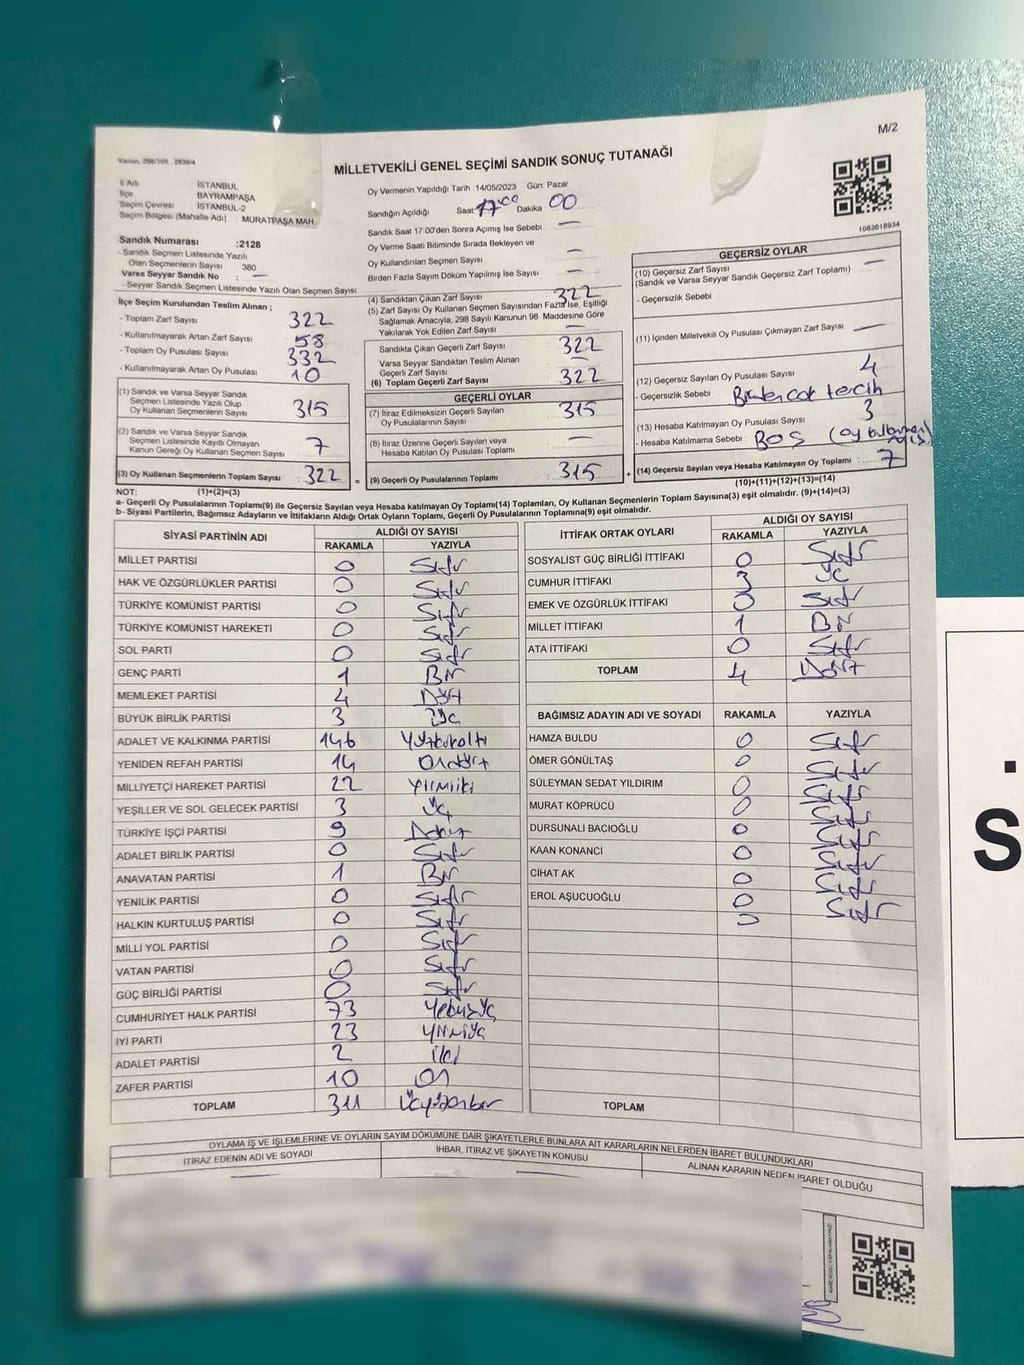 M/2
Kanun, 298/105 2839/4
MİLLETVEKİLİ GENEL SEÇİMİ SANDIK SONUÇ TUTANAĞI
İl Adı İSTANBUL
İlçe BAYRAMPAŞA
Seçim Çevresi İSTANBUL-2
Seçim Bölgesi (Mahalle Adı) MURATPAŞA MAH.
Oy Vermenin Yapıldığı Tarih : 14/05/2023 Gün: Pazar
Sandığın Açıldığı Saat: 17:00 Dakika 00
Sandık Saat 17:00'den Sonra Açılmış İse Sebebi —
Oy Verme Saati Bitiminde Sırada Bekleyen ve
Oy Kullandırılan Seçmen Sayısı —
Birden Fazla Sayım Döküm Yapılmış İse Sayısı —
1083618934
Sandık Numarası :2128
- Sandık Seçmen Listesinde Yazılı
Olan Seçmenlerin Sayısı 380
Varsa Seyyar Sandık No : —
- Seyyar Sandık Seçmen Listesinde Yazılı Olan Seçmen Sayısı:
İlçe Seçim Kurulundan Teslim Alınan ;
- Toplam Zarf Sayısı 322
- Kullanılmayarak Artan Zarf Sayısı 58
- Toplam Oy Pusulası Sayısı 332
- Kullanılmayarak Artan Oy Pusulası 10
(1) Sandık ve Varsa Seyyar Sandık
Seçmen Listesinde Yazılı Olup
Oy Kullanan Seçmenlerin Sayısı 315
(2) Sandık ve Varsa Seyyar Sandık
Seçmen Listesinde Kayıtlı Olmayan
Kanun Gereği Oy Kullanan Seçmen Sayısı 7
(3) Oy Kullanan Seçmenlerin Toplam Sayısı 322
(4) Sandıktan Çıkan Zarf Sayısı 322
(5) Zarf Sayısı Oy Kullanan Seçmen Sayısından Fazla İse, Eşitliği
Sağlamak Amacıyla, 298 Sayılı Kanunun 98 Maddesine Göre
Yakılarak Yok Edilen Zarf Sayısı —
Sandıkta Çıkan Geçerli Zarf Sayısı 322
Varsa Seyyar Sandıktan Teslim Alınan
Geçerli Zarf Sayısı —
(6) Toplam Geçerli Zarf Sayısı 322
GEÇERLİ OYLAR
(7) İtiraz Edilmeksizin Geçerli Sayılan
Oy Pusulalarının Sayısı 315
(8) İtiraz Üzerine Geçerli Sayılan veya
Hesaba Katılan Oy Pusulası Toplamı —
= (9) Geçerli Oy Pusulalarının Toplamı 315 +
GEÇERSİZ OYLAR
(10) Geçersiz Zarf Sayısı —
(Sandık ve Varsa Seyyar Sandık Geçersiz Zarf Toplamı)
- Geçersizlik Sebebi
(11) İçinden Milletvekili Oy Pusulası Çıkmayan Zarf Sayısı —
(12) Geçersiz Sayılan Oy Pusulası Sayısı 4
- Geçersizlik Sebebi : Birden cok tercih
(13) Hesaba Katılmayan Oy Pusulası Sayısı 3
- Hesaba Katılmama Sebebi : BOŞ
(14) Geçersiz Sayılan veya Hesaba Katılmayan Oy Toplamı 7
(10)+(11)+(12)+(13)=(14)
NOT: (1)+(2)=(3)
a- Geçerli Oy Pusulalarının Toplamı(9) ile Geçersiz Sayılan veya Hesaba katılmayan Oy Toplamı(14) Toplamları, Oy Kullanan Seçmenlerin Toplam Sayısına(3) eşit olmalıdır. (9)+(14)=(3)
b- Siyasi Partilerin, Bağımsız Adayların ve İttifakların Aldığı Ortak Oyların Toplamı, Geçerli Oy Pusulalarının Toplamına(9) eşit olmalıdır.
SİYASİ PARTİNİN ADI ALDIĞI OY SAYISI
RAKAMLA YAZIYLA
MİLLET PARTİSİ 0 Sıfır
HAK VE ÖZGÜRLÜKLER PARTİSİ 0 Sıfır
TÜRKİYE KOMÜNİST PARTİSİ 0 Sıfır
TÜRKİYE KOMÜNİST HAREKETİ 0 Sıfır
SOL PARTİ 0 Sıfır
GENÇ PARTİ 1 Bir
MEMLEKET PARTİSİ 4 Dört
BÜYÜK BİRLİK PARTİSİ 3 Üç
ADALET VE KALKINMA PARTİSİ 146 Yüzkırkaltı
YENİDEN REFAH PARTİSİ 14 Ondört
MİLLİYETÇİ HAREKET PARTİSİ 22 Yirmiiki
YEŞİLLER VE SOL GELECEK PARTİSİ 3 Üç
TÜRKİYE İŞÇİ PARTİSİ 9 Dokuz
ADALET BİRLİK PARTİSİ 0 Sıfır
ANAVATAN PARTİSİ 1 Bir
YENİLİK PARTİSİ 0 Sıfır
HALKIN KURTULUŞ PARTİSİ 0 Sıfır
MİLLİ YOL PARTİSİ 0 Sıfır
VATAN PARTİSİ 0 Sıfır
GÜÇ BİRLİĞİ PARTİSİ 0 Sıfır
CUMHURİYET HALK PARTİSİ 73 Yetmişüç
İYİ PARTİ 23 Yirmiüç
ADALET PARTİSİ 2 iki
ZAFER PARTİSİ 10 On
TOPLAM 311 Üçyüzonbir
İTTİFAK ORTAK OYLARI ALDIĞI OY SAYISI
RAKAMLA YAZIYLA
SOSYALİST GÜÇ BİRLİĞİ İTTİFAKI 0 Sıfır
CUMHUR İTTİFAKI 3 Üç
EMEK VE ÖZGÜRLÜK İTTİFAKI 0 Sıfır
MİLLET İTTİFAKI 1 Bir
ATA İTTİFAKI 0 Sıfır
TOPLAM 4 Dört
BAĞIMSIZ ADAYIN ADI VE SOYADI RAKAMLA YAZIYLA
HAMZA BULDU 0 Sıfır
ÖMER GÖNÜLTAŞ 0 Sıfır
SÜLEYMAN SEDAT YILDIRIM 0 Sıfır
MURAT KÖPRÜCÜ 0 Sıfır
DURSUNALİ BACIOĞLU 0 Sıfır
KAAN KONANCİ 0 Sıfır
CİHAT AK 0 Sıfır
EROL AŞUCUOĞLU 0 Sıfır
0
TOPLAM
OYLAMA İŞ VE İŞLEMLERİNE VE OYLARIN SAYIM DÖKÜMÜNE DAİR ŞİKAYETLERLE BUNLARA AİT KARARLARIN NELERDEN İBARET BULUNDUKLARI
İTİRAZ EDENİN ADI VE SOYADI İHBAR, İTİRAZ VE ŞİKAYETİN KONUSU ALINAN KARARIN NEDEN İBARET OLDUĞU
S